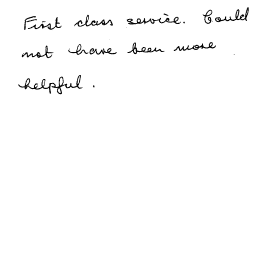 First class service. Could
not have been more
helpful.